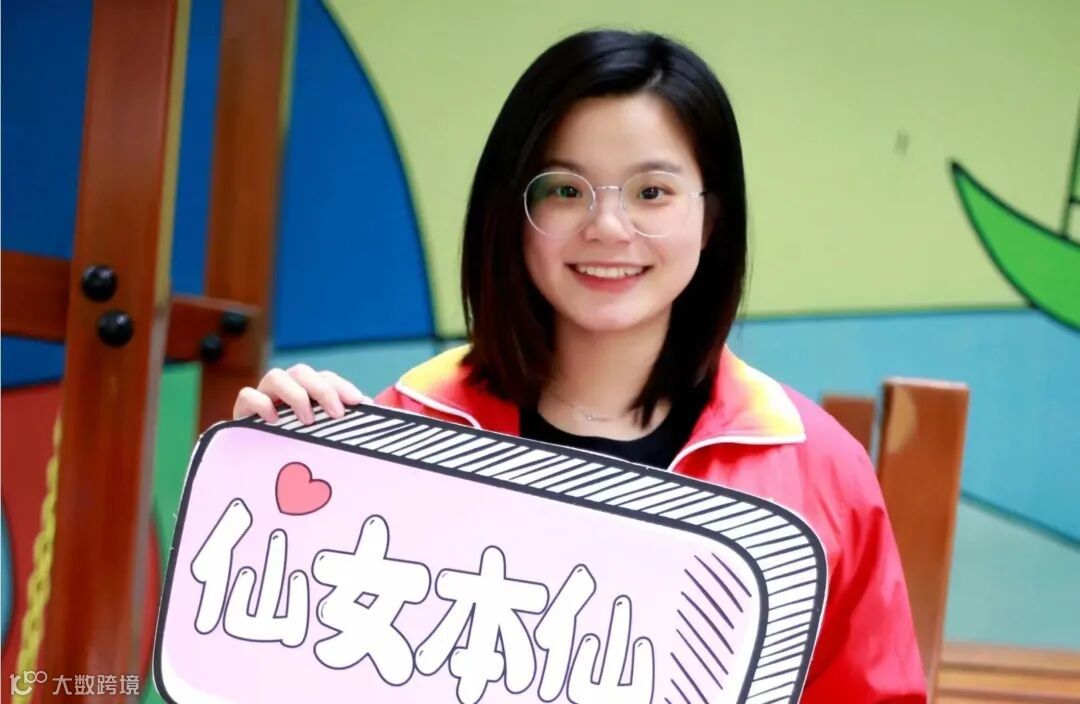 仙女本仙
大数跨境